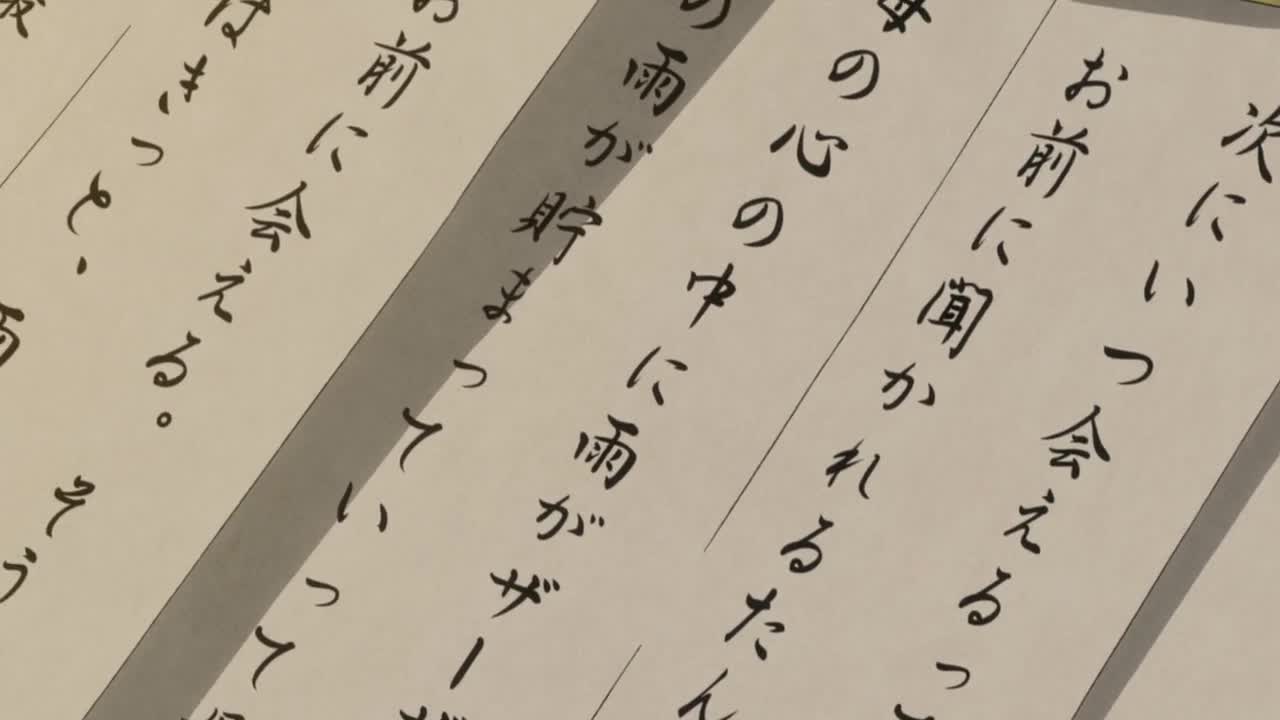 次にいつ会えるって
お前に聞かれるたん
母の心の中に雨がザーザ
の雨が貯まっていって
お前に会える。
はきっと、雨
そう